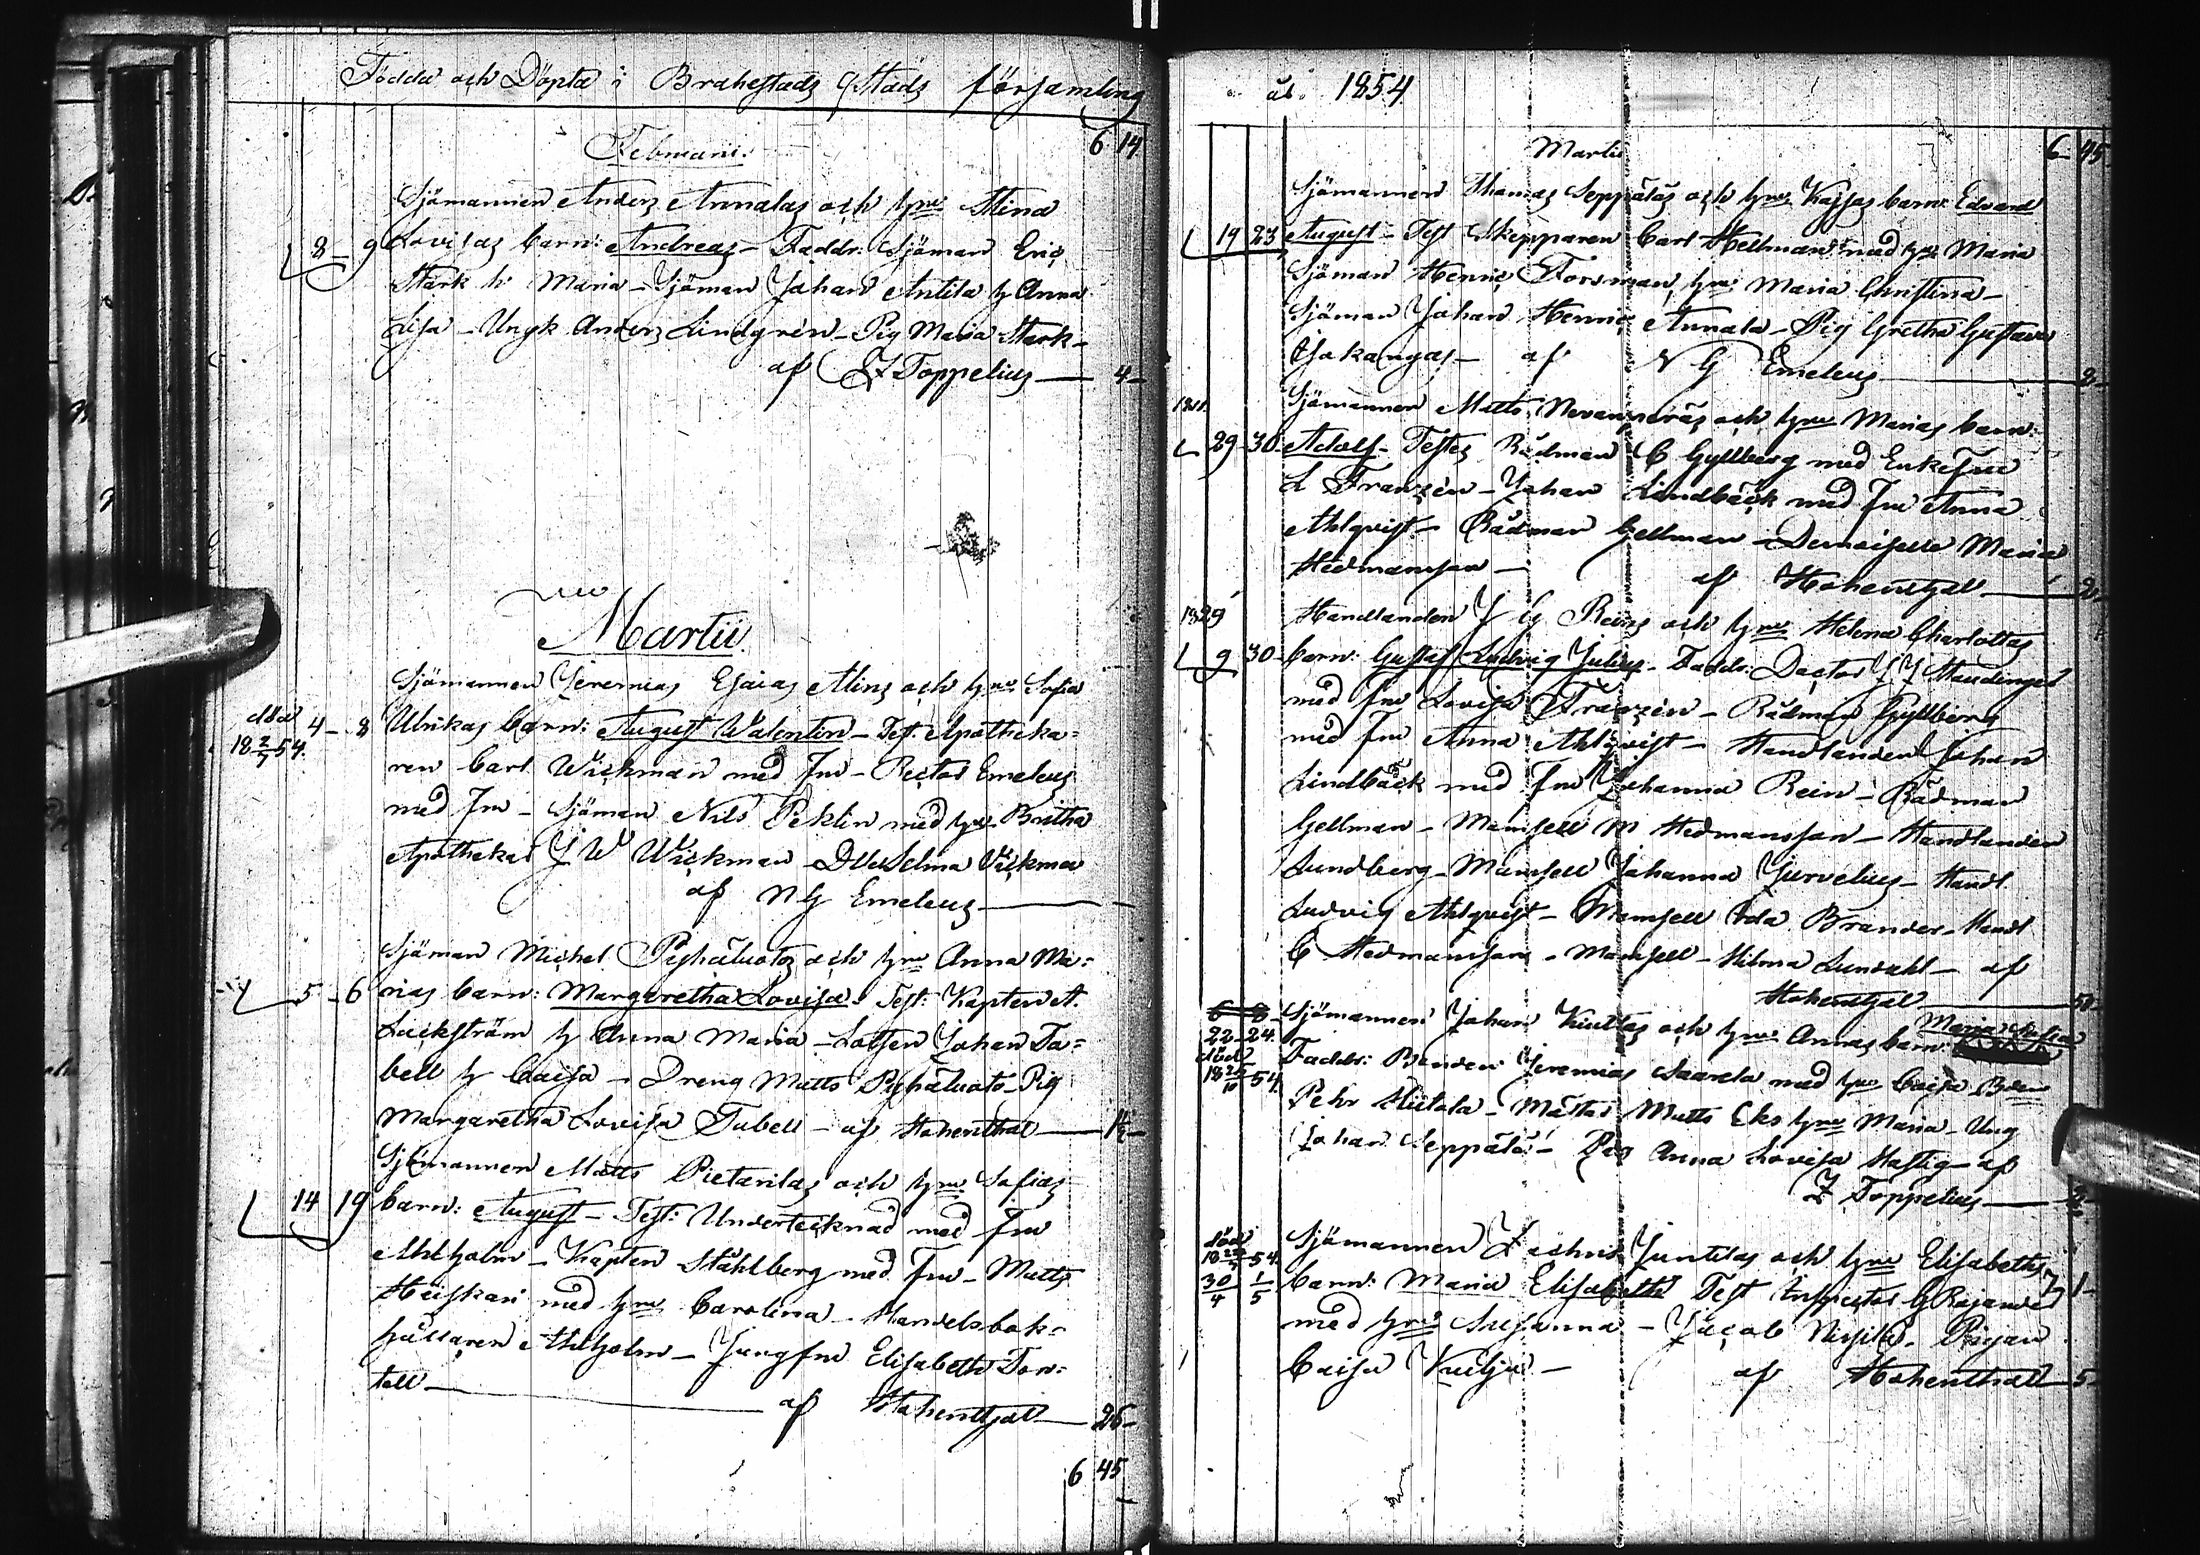 Födda och Döpta i Brahestads Stads församling
6 14
Februarii.
Sjömannen Anders Annalas och hu Stina
8 - 9 Lovisas barn: Andreas - Faddr: Sjöman Eric
Stark h: Maria - Sjöman Johan Antila h Anna
Lisa - Ungk Anders Lindgrén - Pig Maria Stark -
af Z Toppelius — 4 -
Martii.
Sjömannen Jeremias Esaias Alins och hu Sofia
död 4 - 8 Ulrikas barn: August Valentin - Test: Apotheka=
18 2/7 54. ren Carl Wickman med Fru - Rector Emeleus
med Fru - Sjöman Nils Peklin med hu Britha
Apothekar J W Wickman - Dlle Selma Wickman
af N G Emeleus —
Sjöman Michel Pyhäluotos och hu Anna Ma=
5 - 6 rias barn: Margaretha Lovisa - Test: Kapten A.
Lackström h Anna Maria - Lotsen Johan Ta=
bell h Caisa - Dreng Matts Pyhäluoto - Pig
Margaretha Lovisa Tabell - af Hohenthal — 1½ -
Sjömannen Matts Pietarilas och hu Sofias
14 19 barn: August - Test: Undertecknad med Fru
Ahlholm - Kapten Ståhlberg med Fru - Matts
Heiskari med hu Carolina - Handelsbok=
hållaren Ahlholm - Jungfru Elisabeth Ton=
tell — af Hohenthal — 26 -
6 45
år 1854
Martii 6 - 45
Sjömannen Thomas Seppäläs och hu Kajsas barn: Edvard
19 23 August - Test Skepparen Carl Hellman med hu Maria
Sjöman Henric Forsman, hu Maria Christina -
Sjöman Johan Henric Annala - Pig Gretha Gustava
Ojakangas - af N G Emeleus — 2 -
Sjömannen Matts och hu Marias barn:
29 - 30 - Adolf - Testes Rådman C Gyllberg med Enkefru
L Franzén - Johan Lindbäck med Fru Anna
Ahlqvist - Rådman Gellman - Demoiselle Maria
Hedmansson - af Hohenthal — 2 -
1829 Handlanden J G Reins och hu Helena Charlottas
9 30 - barn: Gustaf Ludvig Julius - Faddr: Doctor J J Staudinger
med Fru Lovisa Franzén - Rådman Gyllberg
med Fru Anna Ahlqvist - Handlanden Johan
Lindbäck med Fru Johanna Rein - Rådman
Gellman - Mamsell M Hedmansson - Handlanden
Lundberg - Mamsell Johanna Jurvelius - Handl.
Ludvig Ahlqvist - Mamsell Ida Brander - Handl
C Hedmansson - Mamsell - Hilma Lundahl - af
Hohenthal — 50 -
6 8 Sjömannen Johan och hu Annas barn: Maria
22 - 24. Faddr: Bonden Jeremias Saarela med hu Caisa Bon
död
18 54. Pehr Hiitola - Mäster Matts Eks hu Maria - Ung
Johan Seppälä - Pig Anna Lovisa Hastig - af
Z Toppelius —
död Sjömannen Zachris Juntilas och hu Elisabeths
18 54.
30/4 1/5 barn: Maria Elisabeth Test Inspector G Rajander 1 -
med hu Susanna - Jacob - Pigan
Caisa - af Hohenthal — 5 -